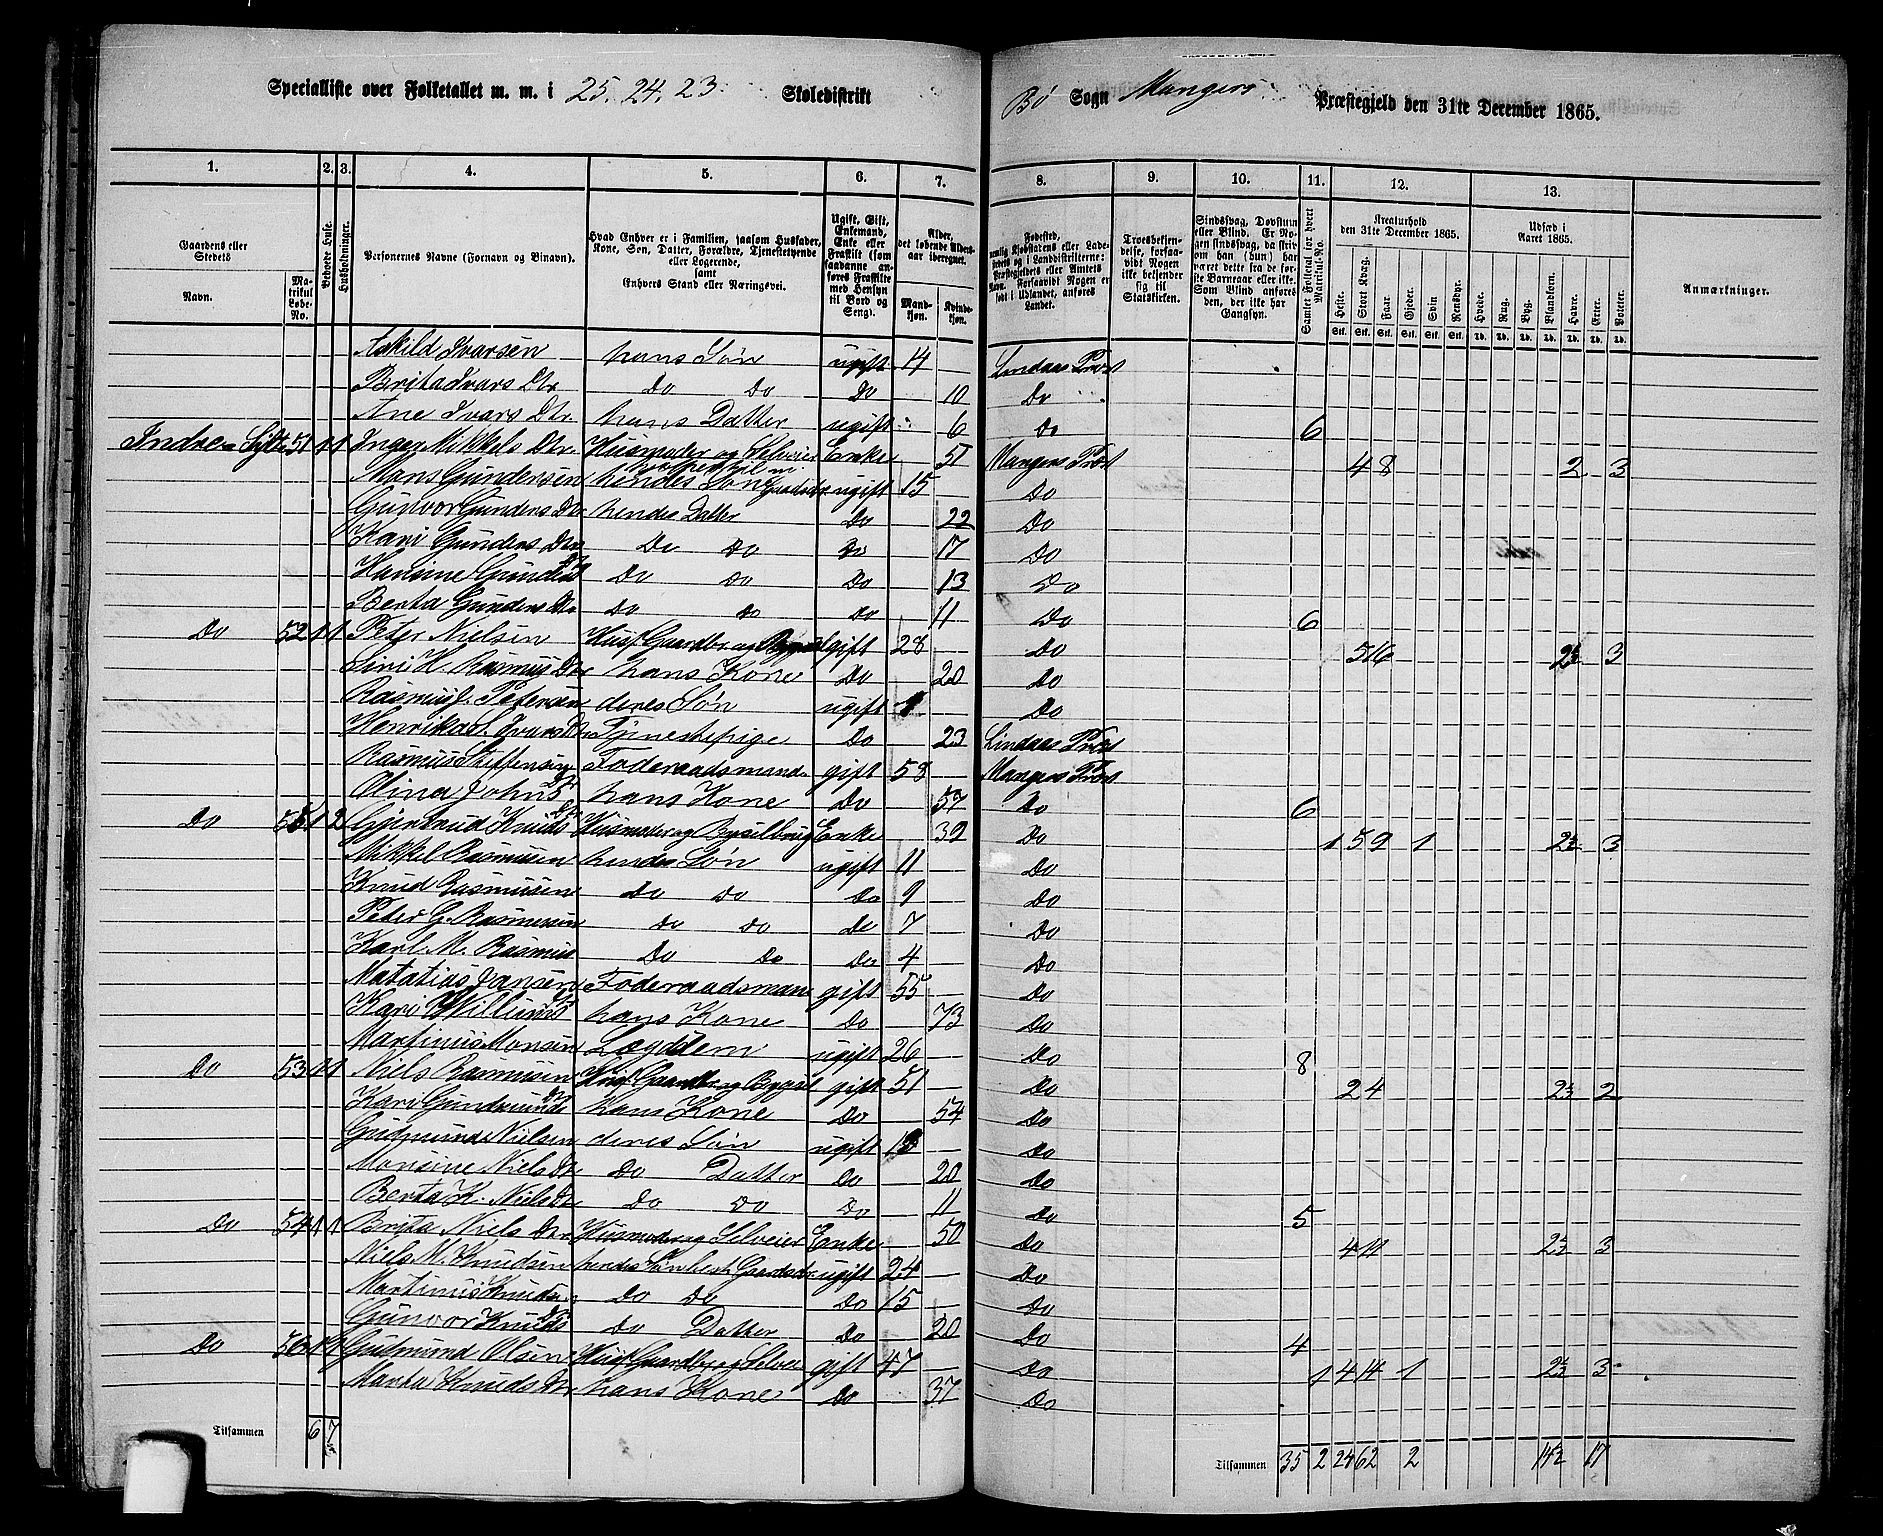 Specialliste over Folketallet m. m. i 25. 24. 23 Skoledistrikt Bø Sogn Mangers Præstegjeld den 31te December 1865.
1. 2. 3. 4. 5. 6. 7. 8. 9. 10. 11. 12. 13.
Gaardens eller Steders Navn. Matrikul Løbe-No. Beboede Huse. Husholdninger. Personernes Navne (Fornavn og Binavn). Hvad Enhver er i Familien, saasom Husfader, Kone, Søn, Datter, Forældre, Tjenestetyende eller Logerende, samt Enhvers Stand eller Næringsvei. Alder, det løbende Alders-aar iberegnet. Mandkjøn. Kvindekjøn. Samlet Folketal for hvert Matrikul-No. Kreaturhold den 31te December 1865. Heste. Stort Kvæg. Faar. Gjeder. Svin Rensdyr. Udsæd i Aaret 1865. Hvede. Rug. Byg. Blandkorn. Havre. Erter. Poteter. Anmærkninger.
Askild Ivarsen hans Søn ugift 14 Lindaas Præst
Brita Ivars Dtr Do Do Do 10 Do
Ane Ivars Dtr. hans Datter ugift 6 Do 6
Indre Sylte 51 1 1 Inger Mikkels Dtr. Husmoder og Selveier Enke 51 Mangers Præst 4 8 2 3
Mons Gundersen hendes Søn ugift 15 Do
Gunvor Gunders Dtr hendes Datter Do 22 Do
Kari Gunders Dtr Do Do Do 17 Do
Hansine Gunders Dtr Do Do Do 13 Do
Berta Gunders Dtr Do Do Do 11 Do 6
Do 52 1 1 Peter Nielsen Husf. Gaardbr. og Bygsel gift 28 Do 5 16 2½ 3
Siri H. Rasmus Dtr hans Kone Do 20 Do
Rasmus J. Petersen deres Søn ugift 1 Do
Henrika S. Ivars Dtr Tjenestepige Do 23 Lindaas Præst
Rasmus Steffensen Føderaadsmand gift 58 Mangers Præst
Olina Johns Dtr hans Kone Do 57 Do 6
Do 55 1 2 Gjertrud Knuds Dtr Husmoder og Bygselbrug Enke 39 Do 1 5 9 1 2½ 3
Mikkel Rasmusen hendes Søn ugift 11 Do
Knud Rasmusen Do Do Do 9 Do
Peder G. Rasmusen Do Do Do 7 Do
Karl M. Rasmus Do Do Do 4 Do
Matatias Jansen Føderaadsman gift 55 Do
Kari Willums Dtr hans Kone Do 73 Do
Martinus Monsen Lægdlem ugift 26 Do 8
Do 53 1 1 Niels Rasmusen Husf. Gaardbr. og Bygsel gift 51 Do 2 4 2½ 2
Kari Gudmunds Dtr hans Kone Do 54 Do
Gudmund Nielsen deres Søn ugift Do
Monsine Niels Dtr Do Datter Do 20 Do
Berta K. Niels Dtr Do Do Do 11 Do 5
Do 54 1 1 Brita Niels Dtr Husmoder og Selveier Enke 50 Do 4 11 2½ 3
Niels M. Knudsen hendes Søn best. Gaardsdr. ugift 24 Do
Martinus Knudsen Do Do Do 15 Do
Gunvor Knuds Dtr Do Datter Do 20 Do 4
Do 56 1 1 Gudmund Olsen Husf. Gaardbr. og Selvei gift 47 Do 1 4 11 1 2½ 3
Marta Knuds Dtr hans Kone Do 37 Do
Tilsammen 6 7 Tilsammen 35 2 24 62 2 14½ 17